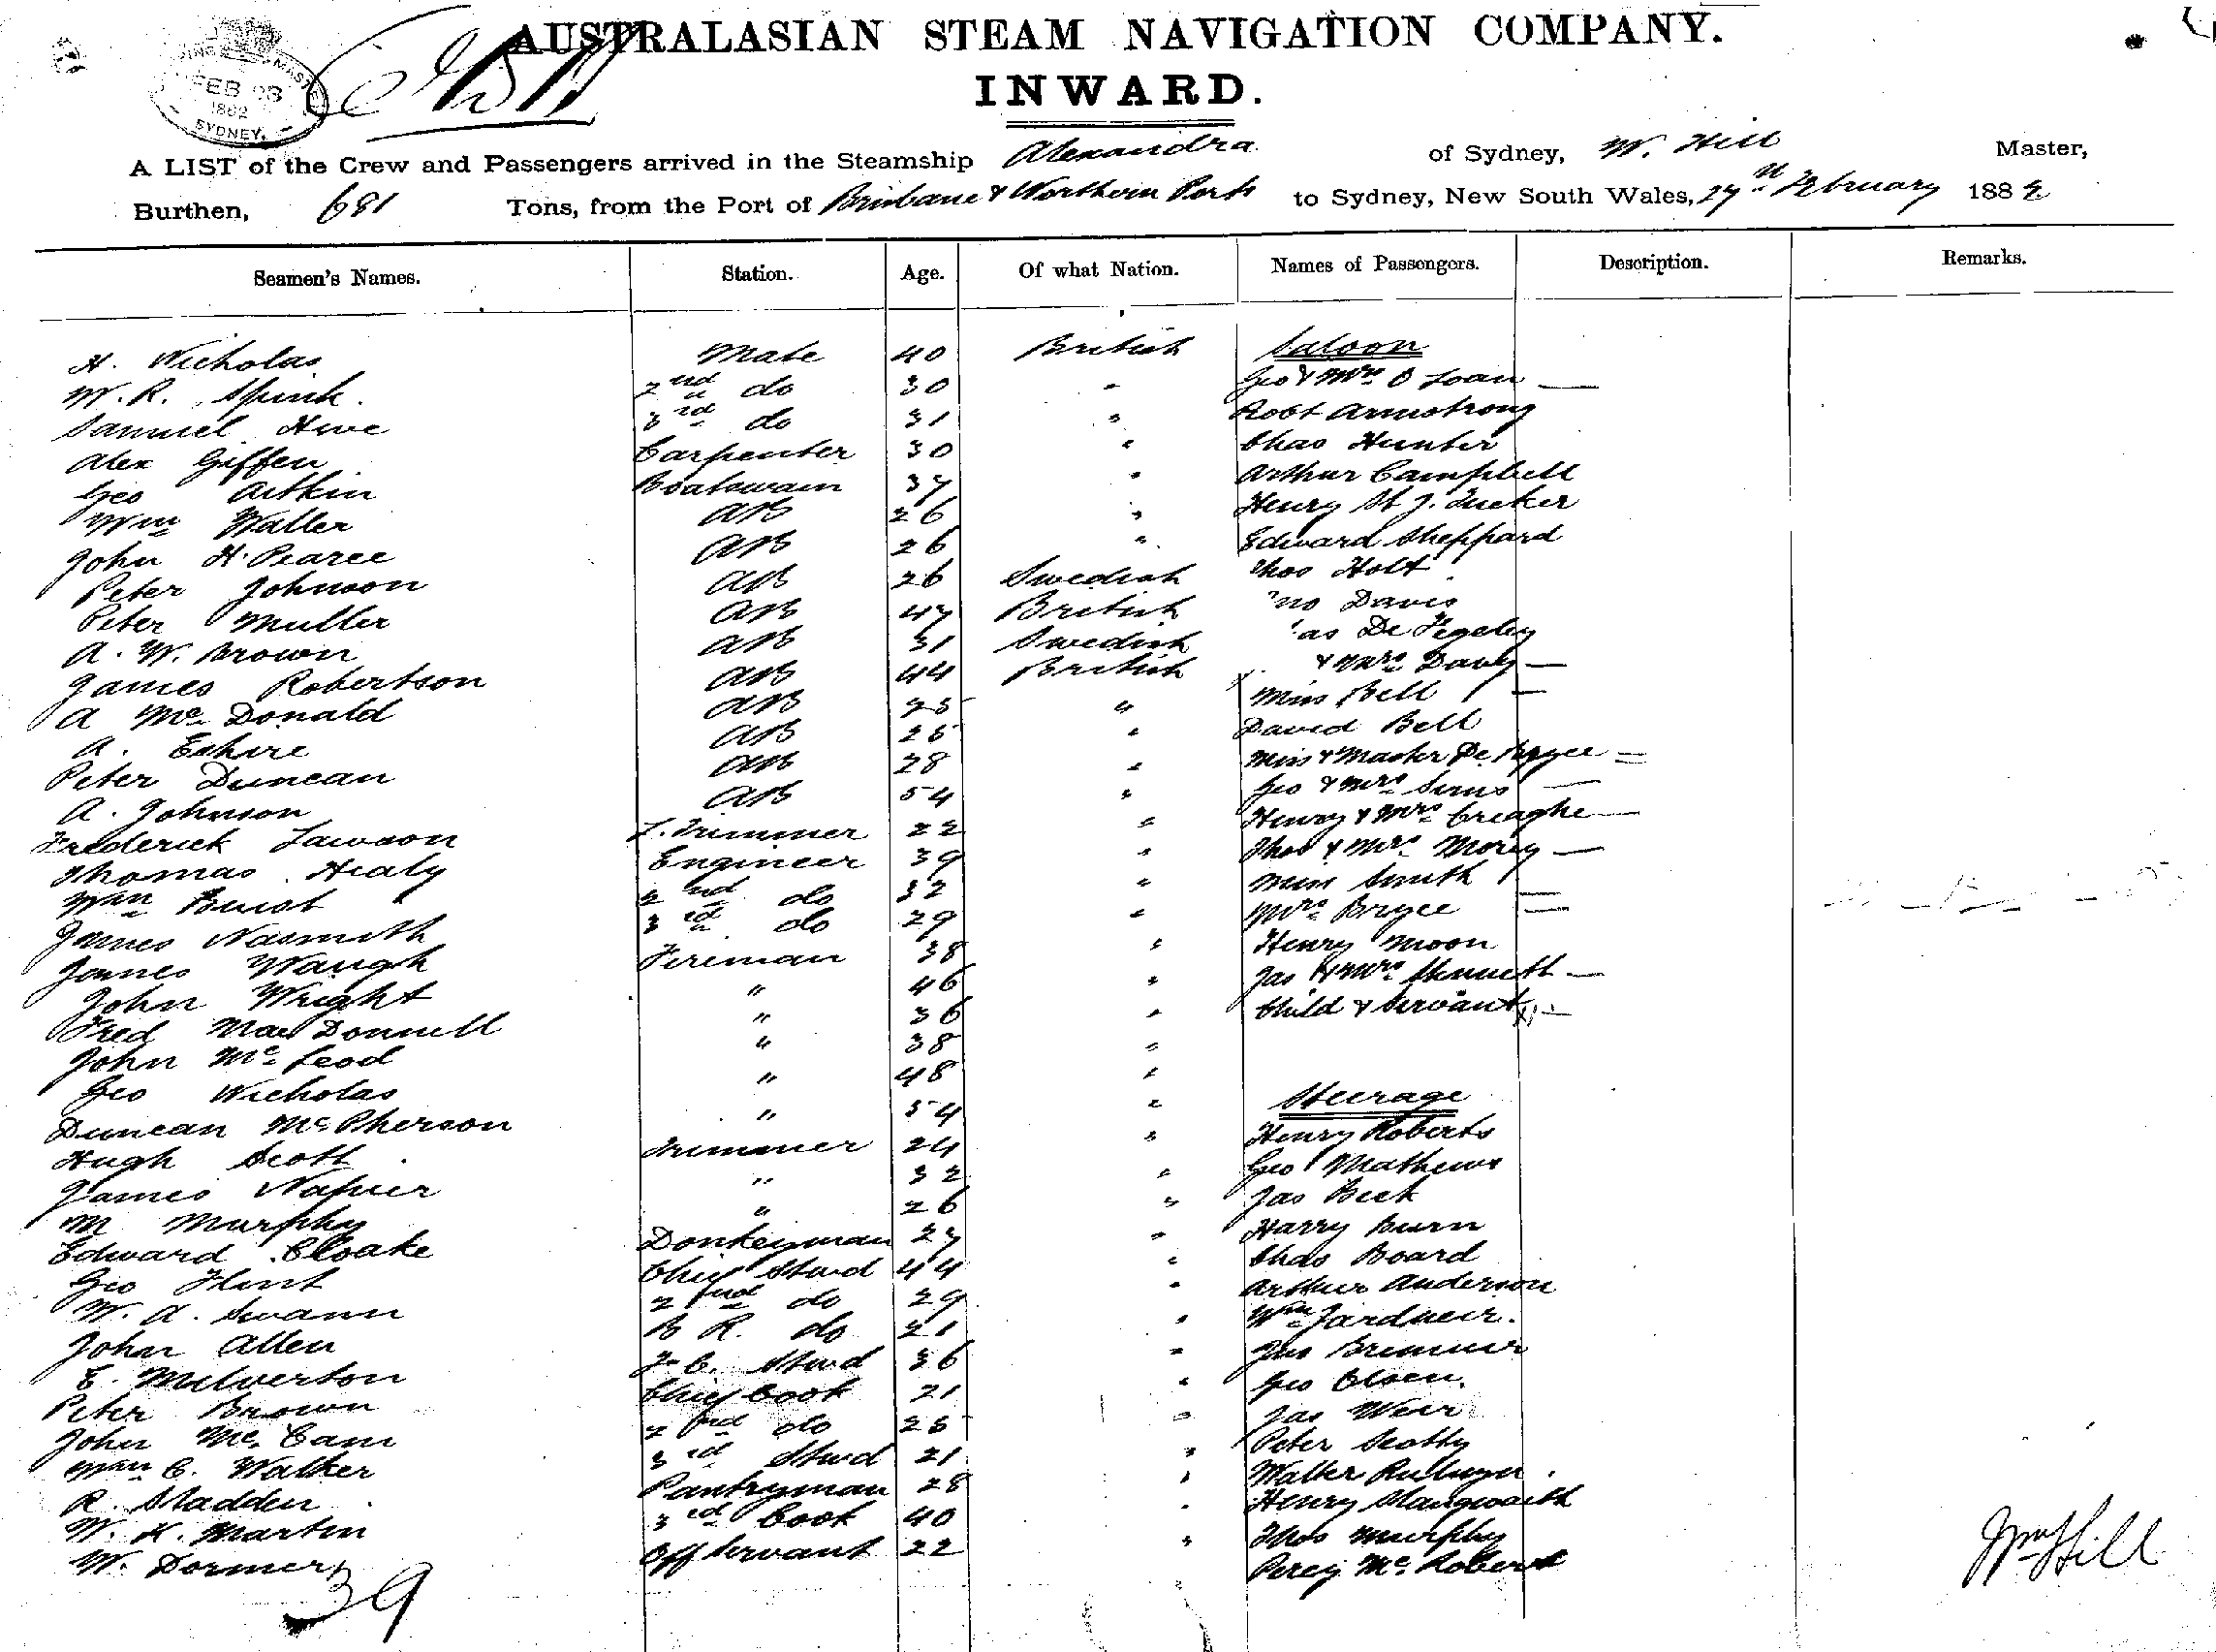 AUSTRALASIAN STEAM NAVIGATION COMPANY.
INWARD.
FEB 28
1882
SYDNEY.
A LIST of the Crew and Passengers arrived in the Steamship Alexandra of Sydney, W. Hill Master,
Burthen, 681 Tons, from the Port of Brisbane & Northern Ports to Sydney, New South Wales, 27th February 1882
Seamen's Names. Station. Age. Of what Nation. Names of Passengers. Description. Remarks.
H. Nicholas Mate 40 British Saloon
W. R. Spink 2nd do 30 " Geo & Mrs O Loan —
Samuel Hwe 3rd do 31 " Robt Armstrong
Alex Giffen Carpenter 30 " Chas Hunter
Geo Aitkin Boatswain 37 " Arthur Campbell
Wm Waller AB 26 " Henry St J. Tucker
John H. Pearce AB 26 " Edward Sheppard
Peter Johnson AB 26 Swedish Thos Holt
Peter Muller AB 47 British Davis
A. W. Brown AB 31 Swedish De
James Robertson AB 44 British & Mrs Davy —
A McDonald AB 25 " Miss Bell —
A. Eshire AB 25 " David Bell
Peter Duncan AB 28 " Miss & Master De Bryce =
A. Johnson AB 54 " Geo & Mrs Sims —
Frederick Lawson L. Trimmer 22 " Henry & Mrs Creaghe —
Thomas Healy Engineer 39 " Thos & Mrs Morey —
Wm Buist 2nd do 32 " Miss Smith
James Nasmith 3rd do 29 " Mrs Bryce
James Waugh Fireman 38 " Henry Moon
John Wright " 46 " Jas & Mrs Skennett —
Fred MacDonnell " 36 " Child & Servant
John McLeod " 38 "
Geo Nicholas " 48 "
Duncan McPherson " 54 " Steerage
Hugh Scott Trimmer 24 " Henry Roberts
James Napier " 32 " Geo Mathews
M Murphy " 26 " Jas Beek
Edward Cloake Donkeyman 27 " Harry Burn
Geo Flint Chief Stwd 44 " Chas Board
W. A. Swann 2nd do 29 " Arthur Anderson
John Allen B R. do 21 " Wm Jardneir.
E. Milverton F. C. Stwd 36 " Jas Bremner
Peter Brown Chief Cook 21 " Geo Olsen.
John McCam 2nd do 25 " Jas Weir
Wm C. Walker 3rd Stwd 21 " Peter Scotty
R. Sladden Pantryman 28 " Walter
W. H. Martin 3rd Cook 40 " Henry
W. Dormer Off Servant 22 " Thos Murphy
Percy McRobert
39
Wm Hill